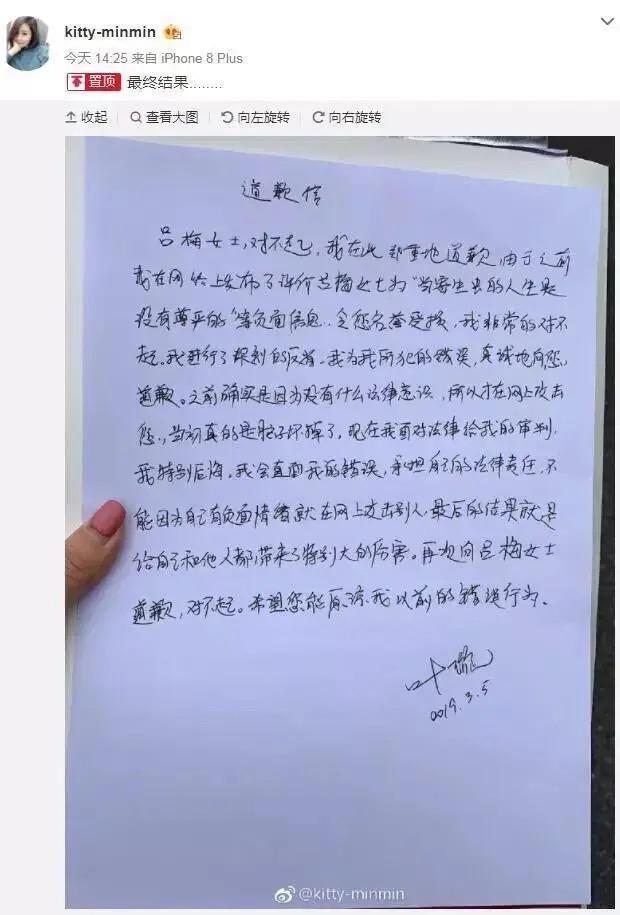 kitty-minmin
今天 14:25 来自 iPhone 8 Plus
置顶 最终结果........
收起 查看大图 向左旋转 向右旋转
道歉信
吕梅女士,对不起,我在此郑重地道歉,由于之前
我在网络上发布了评价吕梅女士为“当寄生虫的人生是
没有尊严的”等负面信息,令您名誉受损,我非常的对不
起。我进行了深刻的反省,我为我所犯的错误,真诚地向您
道歉。之前确实是因为没有什么法律意识,所以才在网上攻击
您,当初真的是脑子坏掉了,现在我面对法律给我的审判,
我特别后悔。我会直面我的错误,承担自己的法律责任,不
能因为自己有负面情绪就在网上攻击别人,最后的结果就是
给自己和他人都带来了特别大的厉害。再次向吕梅女士
道歉,对不起。希望您能原谅我以前的错误行为。
叶璇
2019.3.5
@kitty-minmin